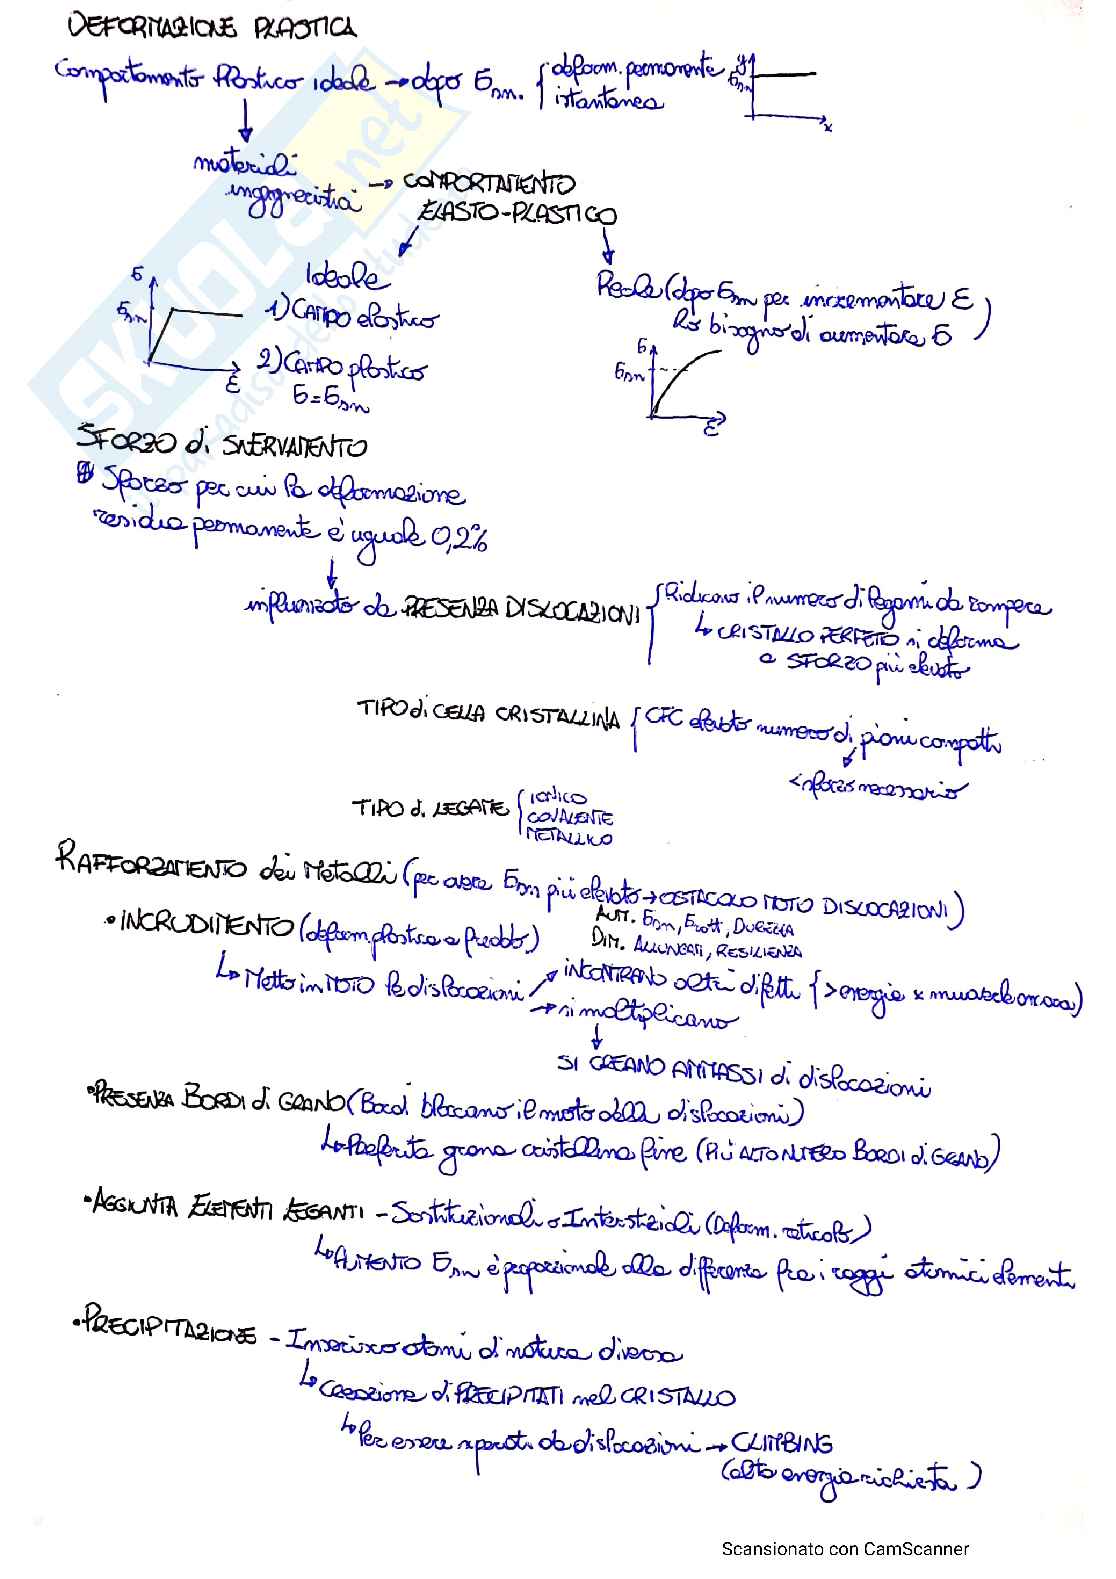 DEFORMAZIONE PLASTICA
Comportamento Plastico ideale → dopo σsn. { deform. permanente
istantanea
y
σsn
x
materiali
ingegneristici → COMPORTAMENTO
ELASTO-PLASTICO
Ideale
1) CAMPO elastico
2) CAMPO plastico
σ = σsn
σ
σsn
ε
Reale (dopo σsn per incrementare ε
ho bisogno di aumentare σ)
σ
σsn
ε
SFORZO di SNERVAMENTO
Sforzo per cui la deformazione
residua permanente è uguale 0,2%
influenzato da PRESENZA DISLOCAZIONI { Riducono il numero di legami da rompere
↳ CRISTALLO PERFETTO si deforma
a SFORZO più elevato
TIPO di CELLA CRISTALLINA { CFC elevato numero di piani compatti
< sforzo necessario
TIPO di LEGAME { IONICO
COVALENTE
METALLICO
RAFFORZAMENTO dei Metalli (per avere σsn più elevato → OSTACOLO MOTO DISLOCAZIONI)
• INCRUDIMENTO (deform plastica a freddo)
AUM. σsn, σrott, DUREZZA
DIM. ALLUNGATI, RESILIENZA
↳ Metto in MOTO le dislocazioni → INCONTRANO altri difetti { > energia x muoverle ancora)
→ si moltiplicano
SI CREANO AMMASSI di dislocazioni
• PRESENZA BORDI di GRANO (Bordi bloccano il moto delle dislocazioni)
↳ Preferita grana cristallina fine (PIÙ ALTO NUMERO BORDI di GRANO)
• AGGIUNTA ELEMENTI LEGANTI - Sostituzionali o Interstiziali (Deform. reticolo)
↳ AUMENTO σsn è proporzionale alla differenza fra i raggi atomici elementi
• PRECIPITAZIONE - Inserisco atomi di natura diversa
↳ Creazione di PRECIPITATI nel CRISTALLO
↳ Per essere superati da dislocazioni → CLIMBING
(alta energia richiesta)
SKUOLA.net
Scansionato con CamScanner